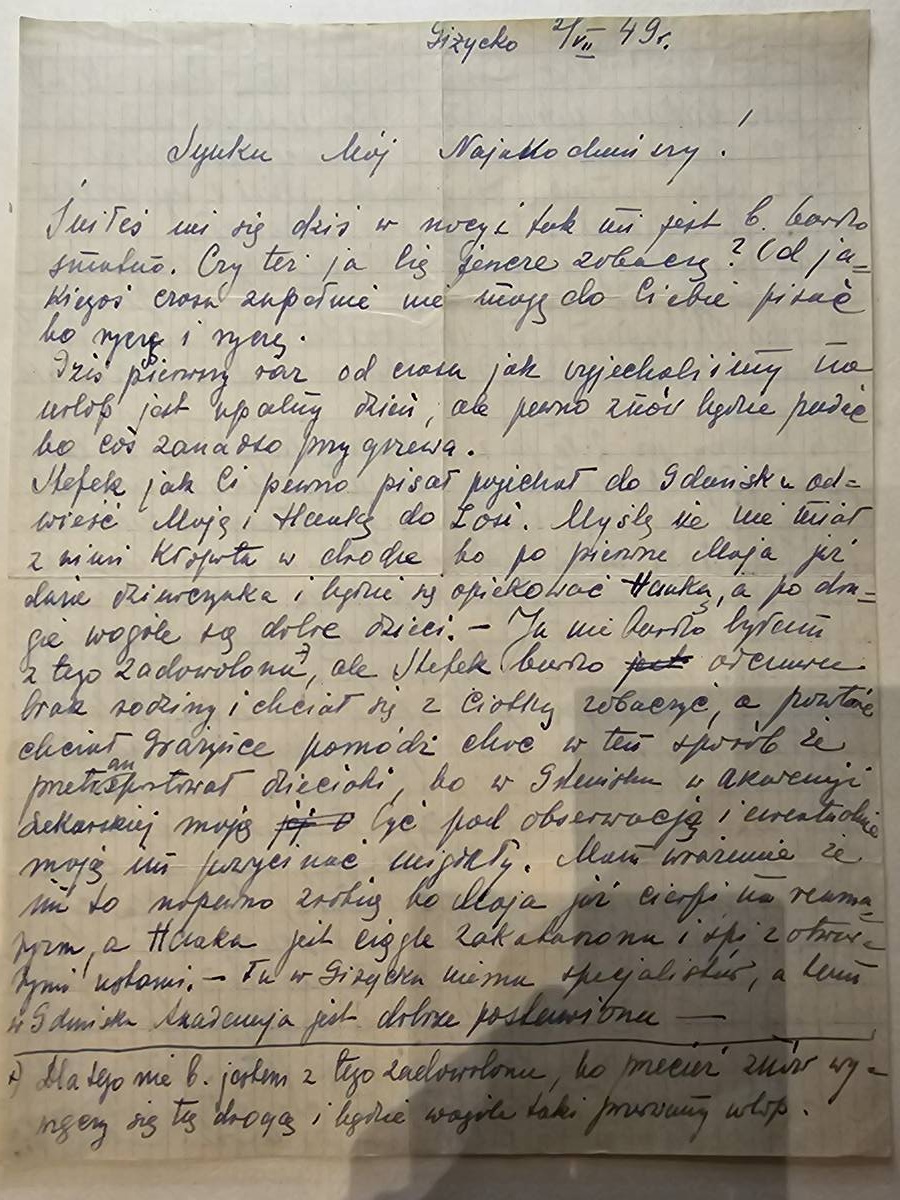 Giżycko 2/VII 49r.
Synku Mój Najsłodszy!
Śniłeś mi się dziś w nocy i tak mi jest b. bardzo
smutno. Czy też ja Cię jeszcze zobaczę? Od ja=
kiegoś czasu zupełnie nie mogę do Ciebie pisać
bo ryczę i ryczę.
Dziś pierwszy raz od czasu jak wyjechaliśmy na
urlop jest upalny dzień, ale pewno znów będzie padać
bo coś zanadto przygrzewa.
Stefek jak Ci pewno pisał pojechał do Gdańska od=
wieść Maję i Hankę do Zosi. Myślę że nie miał
z nimi kłopotu w drodze bo po pierwsze Maja już
duża dziewczynka i będzie się opiekować Hanką, a po dru=
gie wogóle są dobre dzieci. – Ja nie bardzo byłam
z tego zadowolona, ale Stefek bardzo jest odczuwa
brak rodziny i chciał się z Ciotką zobaczyć, a powtóre
chciał Grażynce pomódz choć w ten sposób że
przetransportował dzieciaki, bo w Gdańsku w Akademji
Lekarskiej mają być pod obserwacją i ewentualnie
mają im przycinać migdały. Mam wrażenie że
im to napewno zrobią bo Maja już cierpi na reuma=
tyzm, a Hanka jest ciągle zakatarzona i śpi z otwar=
tymi ustami. – Tu w Giżycku niema specjalistów, a tam
w Gdańsku Akademja jest dobrze postawiona —
x) Dlatego nie b. jestem z tego zadowolona, bo przecież znów wy=
męczy się tą drogą i będzie wogóle taki przerwany urlop.